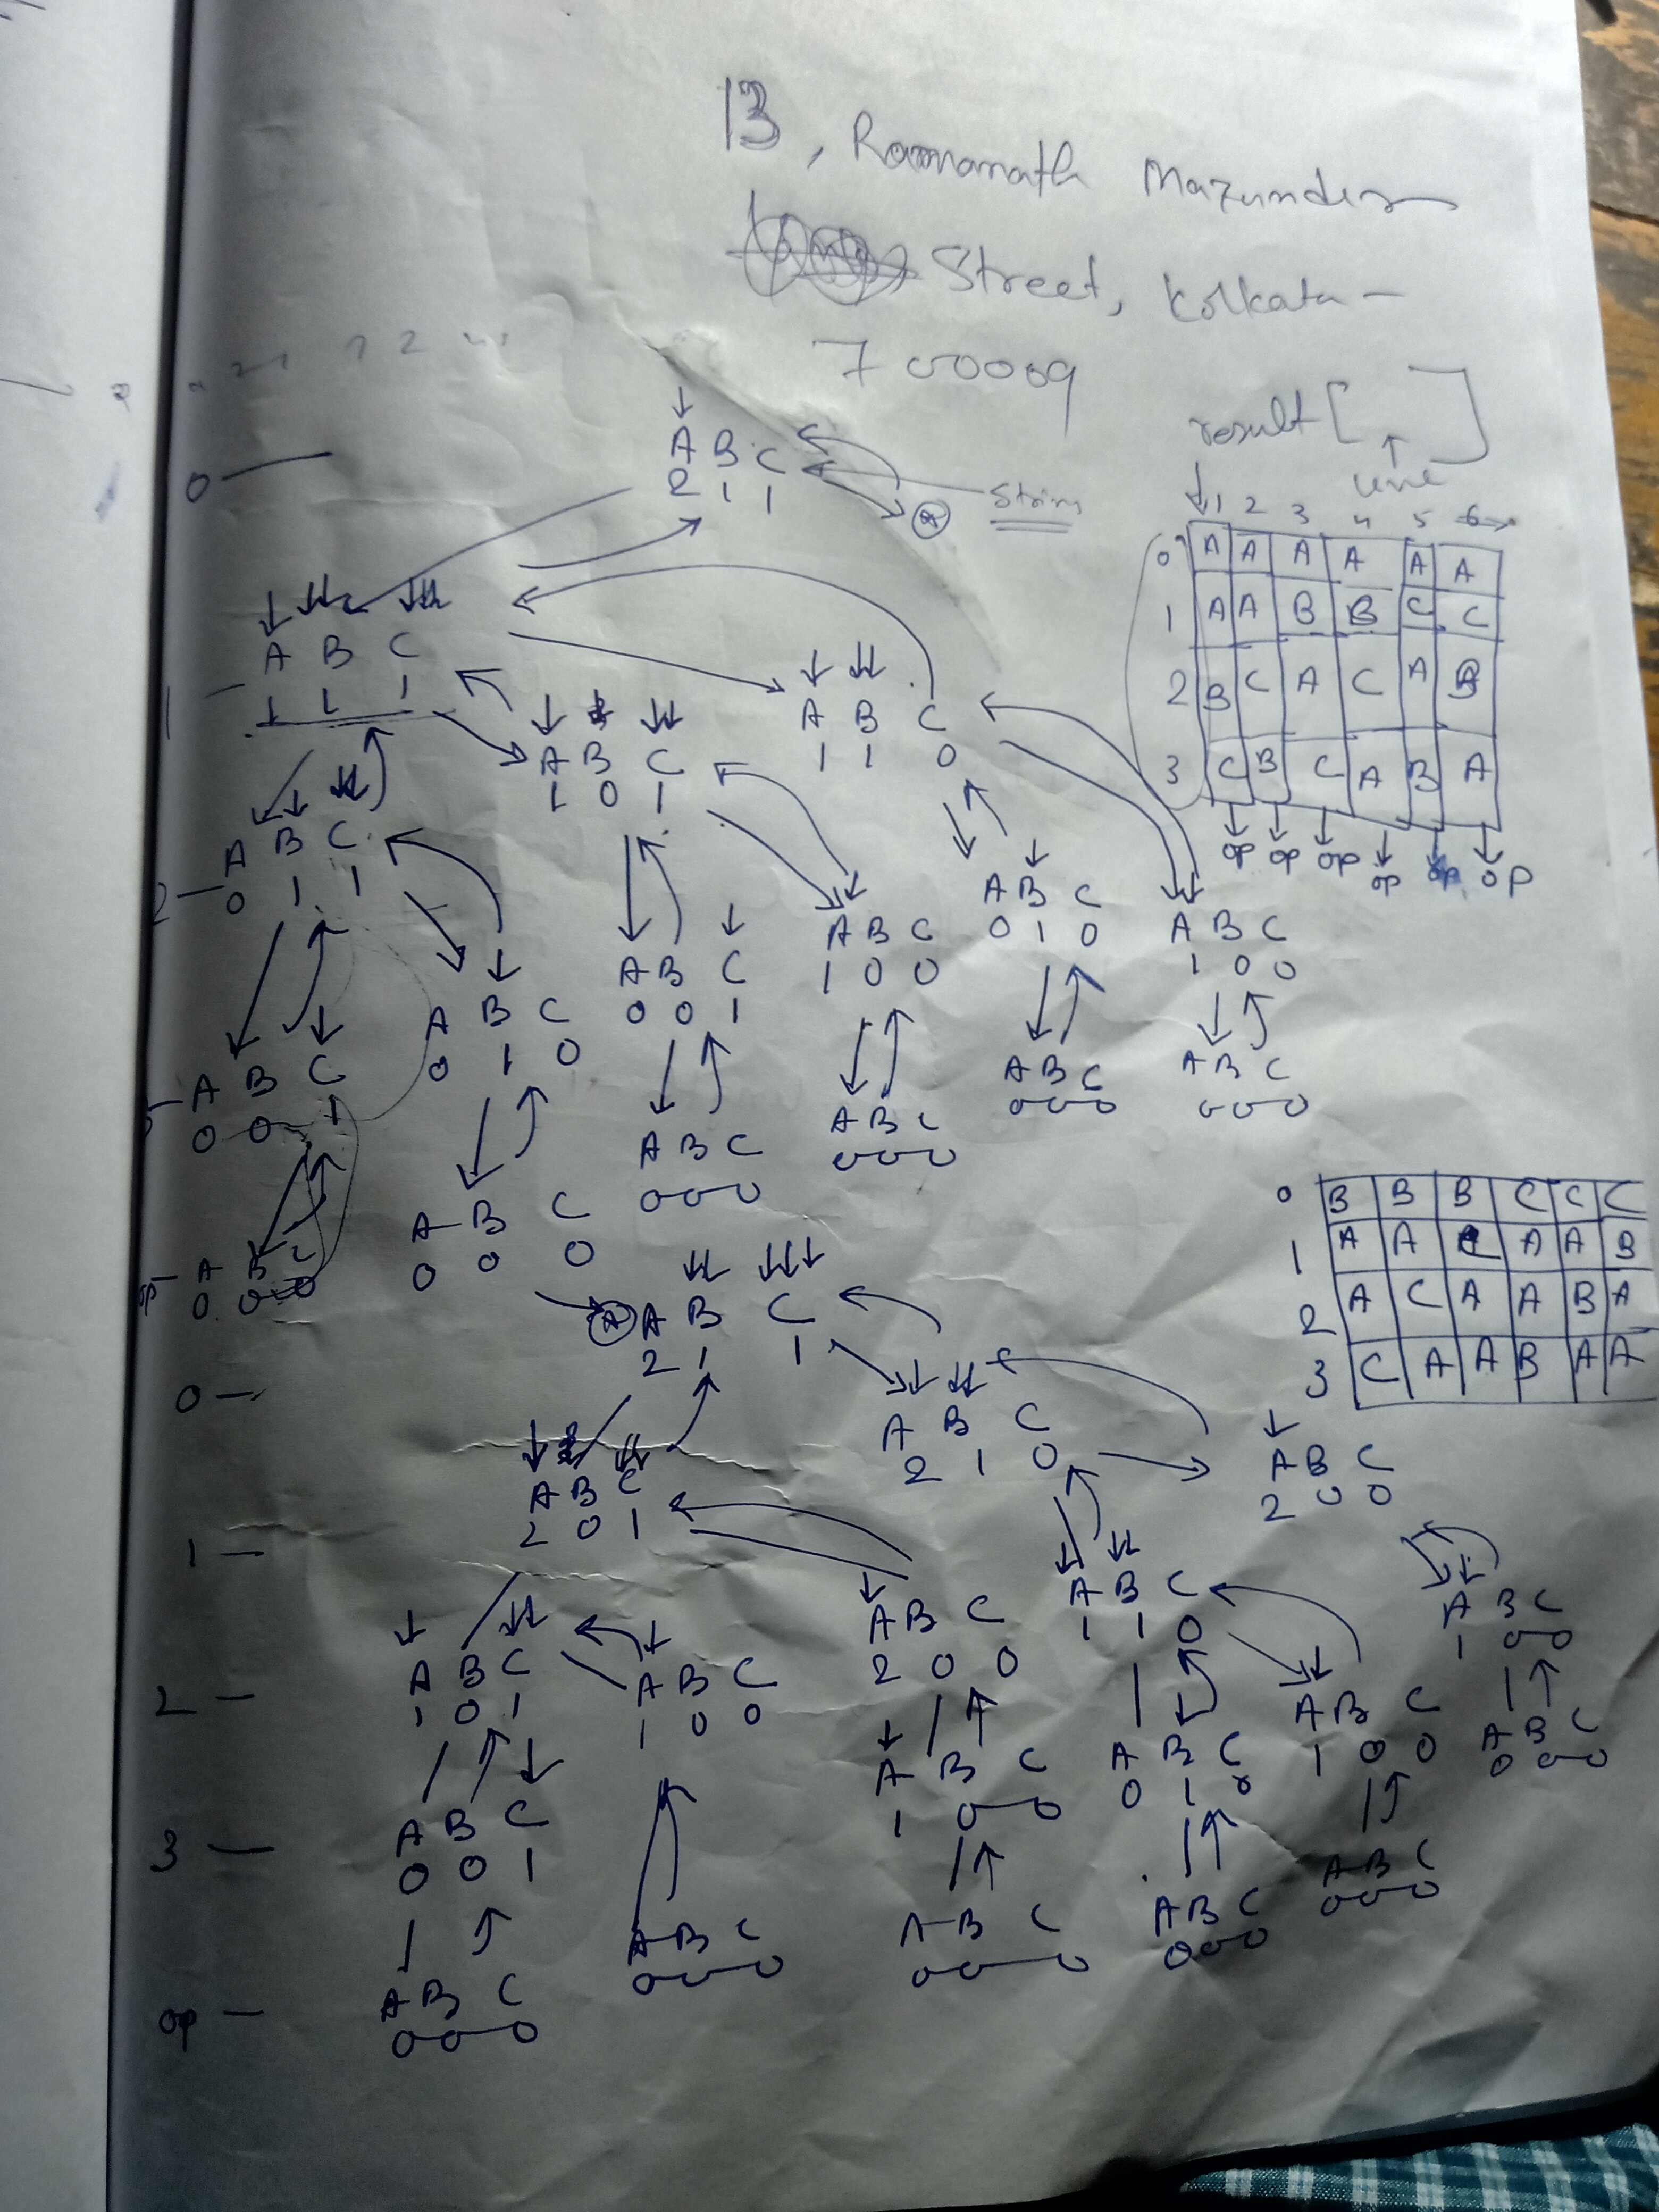 13, Ramanath Mazumder
Street, Kolkata -
700009
result [ ]
A B C
2 1 1
0
String
1 2 3 4 5 6
0 A A A A A A
1 A A B B C C
2 B C A C A B
3 C B C A B A
op op op op op op
A B C
1 1 1
1
A B C
1 0 1
A B C
1 1 0
A B C
0 1 1
2
A B C
0 1 0
A B C
0 0 1
A B C
1 0 0
A B C
0 1 0
A B C
1 0 0
A B C
0 0 1
A B C
0 0 0
A B C
0 0 0
A B C
0 0 0
A B C
0 0 0
A B C
0 0 0
A B C
0 0 0
0 B B B C C C
1 A A C A A B
2 A C A A B A
3 C A A B A A
A A B C
2 1 1
0
A B C
2 0 1
A B C
2 1 0
A B C
2 0 0
1
A B C
1 0 1
2
A B C
1 0 0
A B C
2 0 0
A B C
1 1 0
A B C
1 0 0
A B C
0 0 1
3
A B C
1 0 0
A B C
0 1
A B C
1 0 0
A B C
0 0 0
A B C
0 0 0
op
A B C
0 0 0
A B C
0 0 0
A B C
0 0 0
A B C
0 0 0